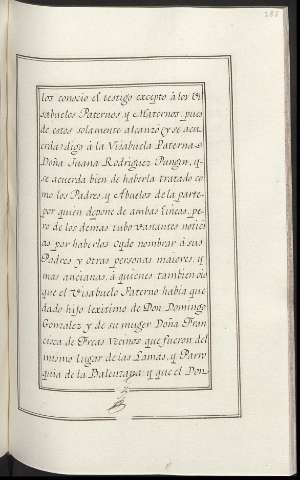 los conocio el testigo excepto à los Vi
sabuelos Paternos y Maternos, pues
de estos solamente alcanzo (y se acu
erda) digo à la Visabuela Paterna
Doña Juana Rodriguez Pungin, q.e
se acuerda bien de haberla tratado co
mo los Padres, y Abuelos de la parte
por quien depone de ambas lineas, pe
ro de los demas tubo vanantes notici
as por haberlos oydo nombrar à sus
Padres y otras personas maiores, y
mas ancianas, à quienes tambien oio
que el Visabuelo Paterno habia que
dado hijo lexitimo de Don Domingo
Gonzalez y de su muger Doña Fran
cisca de Freas Vecinos que fueron del
mismo lugar de las Lamas, y Parro
quia de la Balenzana; y que el Don